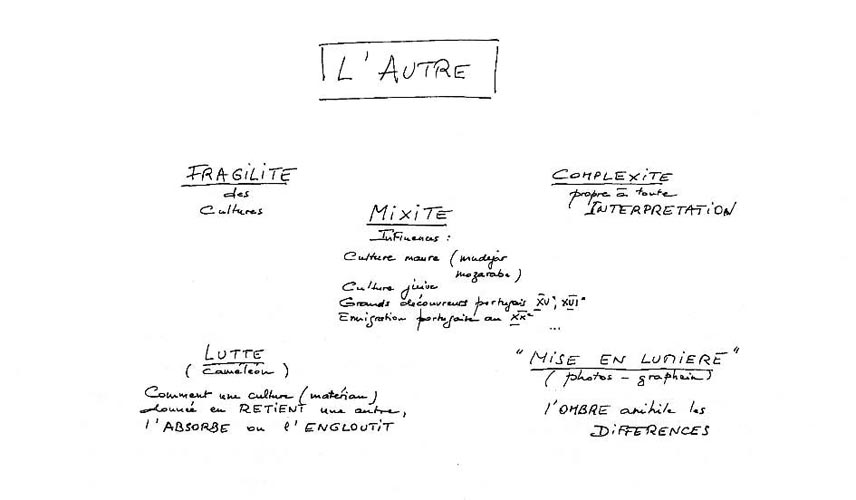 L'AUTRE
FRAGILITE
des
Cultures
COMPLEXITE
propre à toute
INTERPRETATION
MIXITE
Influences :
Culture maure (mudejar
mozarabe)
Culture juive
Grands découvreurs portugais XV°, XVI°
Emigration portugaise au XX° ...
LUTTE
(caméléon)
Comment une culture (matériau)
donnée en RETIENT une autre,
l'ABSORBE ou l'ENGLOUTIT
"MISE EN LUMIERE"
(photos - graphein)
l'OMBRE anihile les
DIFFERENCES